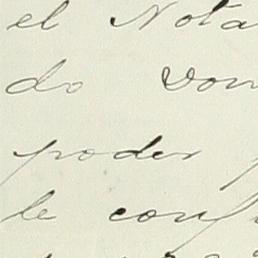 el Nota
do Don
poder
le conf